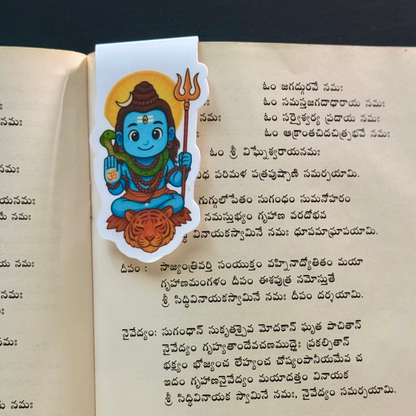 ఓం జగద్గురవే నమః
ఓం సమస్తజగదాధారాయ నమః
ఓం సర్వైశ్వర్య ప్రదాయ నమః
ఓం ఆక్రాంతచిదచిత్ప్రభవే నమః
ఓం శ్రీ విఘ్నేశ్వరాయనమః
పరిమళ పత్రపుష్పాణి సమర్పయామి.
గుగ్గులోపేతం సుగంధం సుమనోహరం
నమస్తుభ్యం గృహాణ వరదోభవ
సిద్ధివినాయకస్వామినే నమః ధూపమాఘ్రాపయామి.
దీపం : సాజ్యంత్రివర్తి సంయుక్తం వహ్నినాద్యోతితం మయా
గృహాణమంగళం దీపం ఈశపుత్ర నమోస్తుతే
శ్రీ సిద్ధివినాయకస్వామినే నమః దీపం దర్శయామి.
నైవేద్యం: సుగంధాన్ సుకృతశ్చైవ మోదకాన్ ఘృత పాచితాన్
నైవేద్యం గృహ్యతాందేవచణముద్గైః ప్రకల్పితాన్
భక్ష్యం భోజ్యంచ లేహ్యంచ చోష్యంపానీయమేవ చ
ఇదం గృహాణనైవేద్యం మయాదత్తం వినాయక
శ్రీ సిద్ధివినాయక స్వామినే నమః, నైవేద్యం సమర్పయామి.